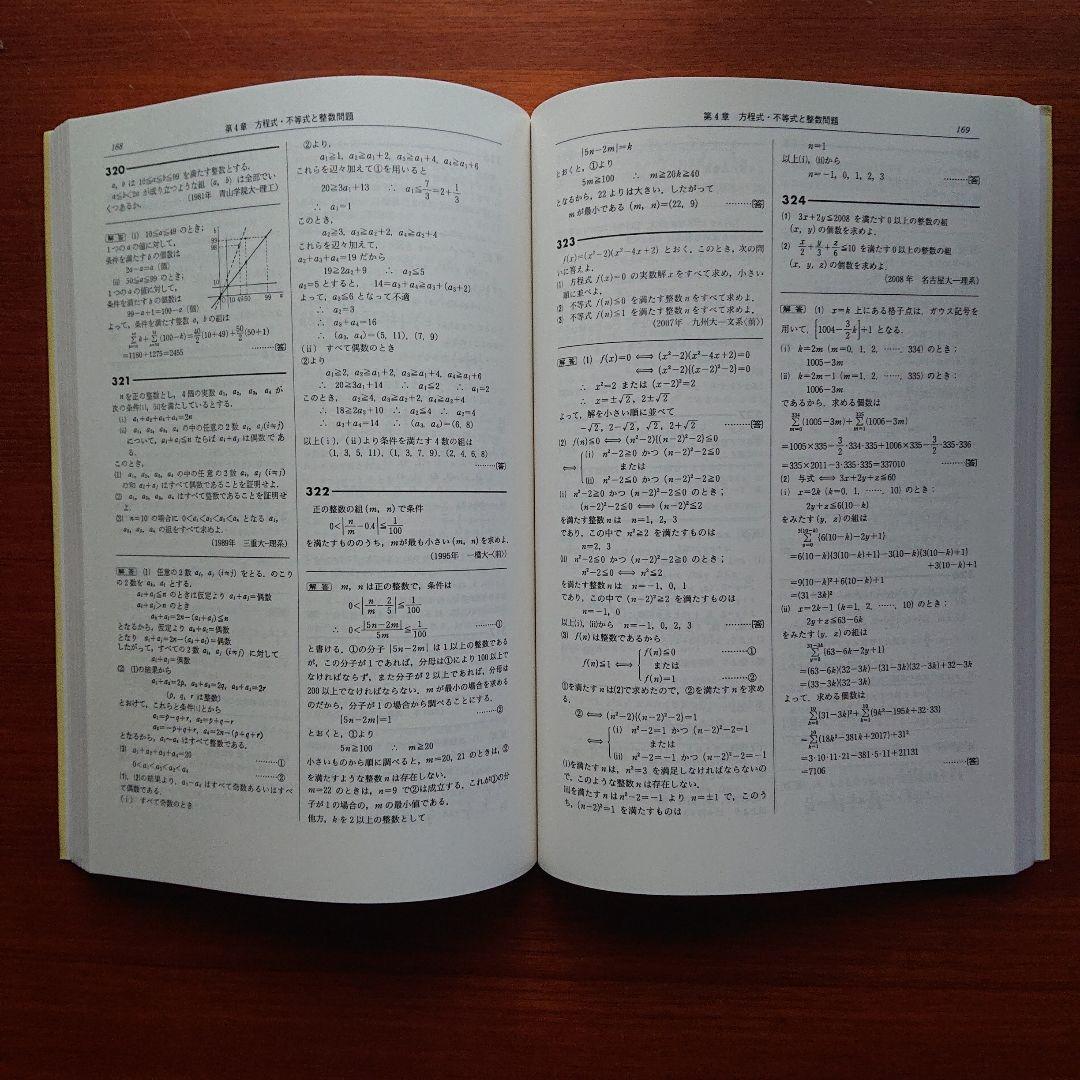 168
第4章 方程式・不等式と整数問題
320
a, b は 10≦a≦b≦99 を満たす整数とする.
a≦b<2a が成り立つような組 (a, b) は全部でい
くつあるか.
(1981年 青山学院大-理工)
解答 (i) 10≦a≦49 のとき;
1つの a の値に対して,
条件を満たす b の個数は
2a-a=a (個)
(ii) 50≦a≦99 のとき;
1つの a の値に対して,
条件を満たす b の個数は
99-a+1=100-a (個)
よって, 条件を満たす整数 a, b の組は
=1180+1275=2455
………(答)
321
n を正の整数とし, 4個の実数 a₁, a₂, a₃, a₄ が
次の条件(i), (ii)を満たしているとする.
(i) a₁+a₂+a₃+a₄=2n
(ii) a₁, a₂, a₃, a₄ の中の任意の2数 aᵢ, aⱼ(i≠j)
について, aᵢ+aⱼ≦n ならば aᵢ+aⱼ は偶数であ
る.
このとき,
(1) a₁, a₂, a₃, a₄ の中の任意の2数 aᵢ, aⱼ (i≠j)
の和 aᵢ+aⱼ はすべて偶数であることを証明せよ.
(2) a₁, a₂, a₃, a₄ はすべて整数であることを証明せ
よ.
(3) n=10 の場合に 0<a₁<a₂<a₃<a₄ となる a₁,
a₂, a₃, a₄ の組をすべて求めよ.
(1989年 三重大-理系)
解答 (1) 任意の2数 aᵢ, aⱼ (i≠j) をとる. のこり
の2数を aₖ, aₗ とする.
aᵢ+aⱼ≦n のときは仮定より aᵢ+aⱼ=偶数
aᵢ+aⱼ>n のとき
aₖ+aₗ=2n-(aᵢ+aⱼ)≦n
となるから, 仮定より aₖ+aₗ=偶数
となり aᵢ+aⱼ=2n-(aₖ+aₗ)=偶数
したがって, すべての2数 aᵢ, aⱼ (i≠j) に対して
aᵢ+aⱼ=偶数
(2) (1)の結果から
a₁+a₂=2p, a₁+a₃=2q, a₂+a₃=2r
(p, q, r は整数)
とおけて, これらと条件(i)とから
a₁=p+q-r, a₂=p-q+r
a₃=-p+q+r, a₄=2n-(p+q+r)
となるから, a₁~a₄ はすべて整数である.
(3) a₁+a₂+a₃+a₄=20 ………①
0<a₁<a₂<a₃<a₄ ………②
(1), (2)の結果より, a₁~a₄ はすべて奇数あるいはすべ
て偶数である.
(i) すべて奇数のとき
②より,
a₁≧1, a₂≧a₁+2, a₃≧a₁+4, a₄≧a₁+6
これらを辺々加えて①を用いると
20≧4a₁+12 ∴
∴ a₁=1
このとき,
a₂≧3, a₃≧a₂+2, a₄≧a₂+4
これらを辺々加えて,
a₂+a₃+a₄=19 だから
19≧2a₂+9 ∴ a₂≦5
a₂=5 とすると, 14=a₃+a₄≧a₃+(a₃+2)
よって, a₃≦6 となって不適
∴ a₂=3
∴ a₃+a₄=16
∴ (a₃, a₄)=(5, 11), (7, 9)
(ii) すべて偶数のとき
②より
a₁≧2, a₂≧a₁+2, a₃≧a₁+4, a₄≧a₁+6
∴ 20≧3a₁+14 ∴ a₁≦2 ∴ a₁=2
このとき, a₂≧4, a₃≧a₂+2, a₄≧a₂+4
∴ 18≧2a₂+10 ∴ a₂≦4 ∴ a₂=4
∴ a₃+a₄=14 ∴ (a₃, a₄)=(6, 8)
以上(i), (ii)より条件を満たす4数の組は
(1, 3, 5, 11), (1, 3, 7, 9), (2, 4, 6, 8)
………(答)
322
正の整数の組(m, n)で条件
0<|n/m-0.4|≦1/100
を満たすもののうち, m が最も小さい(m, n)を求めよ.
(1995年 一橋大-(前))
解答 m, n は正の整数で, 条件は
0<|n/m-2/5|≦1/100
∴ 0<|5n-2m|/5m≦1/100 ………①
と書ける. ①の分子 |5n-2m| は1以上の整数である
が, この分子が1であれば, 分母は①により100以上で
なければならず, また分子が2以上であれば, 分母は
200以上でなければならない. m が最小の場合を求める
のだから, 分子が1の場合から調べることにする.
|5n-2m|=1 ………②
とおくと, ①より
5m≧100 ∴ m≧20
小さいものから順に調べると, m=20, 21 のときは, ②
を満たすような整数 n は存在しない.
m=22 のときは, n=9 で②は成立する. これが①の分
子が1の場合の, m の最小値である.
他方, k を2以上の整数として
第4章 方程式・不等式と整数問題
169
|5n-2m|=k
とおくと, ①より
5m≧100k ∴ m≧20k≧40
となるから, 22よりは大きい. したがって
m が最小である (m, n)=(22, 9) ………(答)
323
f(x)=(x²-2)(x²-4x+2) とおく. このとき, 次の問
いに答えよ.
(1) 方程式 f(x)=0 の実数解 x をすべて求め, 小さい
順に並べよ.
(2) 不等式 f(n)≦0 を満たす整数 n をすべて求めよ.
(3) 不等式 f(n)≦1 を満たす整数 n をすべて求めよ.
(2007年 九州大-文系(前))
解答 (1) f(x)=0 ⟺ (x²-2)(x²-4x+2)=0
⟺ (x²-2){(x-2)²-2}=0
∴ x²=2 または (x-2)²=2
∴ x=±√2, 2±√2
よって, 解を小さい順に並べて
-√2, 2-√2, √2, 2+√2 ………(答)
(2) f(n)≦0 ⟺ (n²-2){(n-2)²-2}≦0
⟺ {(i) n²-2≧0 かつ (n-2)²-2≦0
または
(ii) n²-2≦0 かつ (n-2)²-2≧0
(i) n²-2≧0 かつ (n-2)²-2≦0 のとき;
(n-2)²-2≦0 ⟺ (n-2)²≦2
を満たす整数 n は n=1, 2, 3
であり, この中で n²≧2 を満たすものは
n=2, 3
(ii) n²-2≦0 かつ (n-2)²-2≧0 のとき;
n²-2≦0 ⟺ n²≦2
を満たす整数 n は n=-1, 0, 1
であり, この中で (n-2)²≧2 を満たすものは
n=-1, 0
以上(i), (ii)から n=-1, 0, 2, 3 ………(答)
(3) f(n)は整数であるから
f(n)≦1 ⟺ {f(n)≦0 ………①
または
f(n)=1 ………②
①を満たす n は(2)で求めたので, ②を満たす n を求め
る.
② ⟺ (n²-2){(n-2)²-2}=1
⟺ {(i) n²-2=1 かつ (n-2)²-2=1
または
(ii) n²-2=-1 かつ (n-2)²-2=-1
(i)を満たす n は, n²=3 を満足しなければならないの
で, このような整数 n は存在しない.
(ii)を満たす n は n²-2=-1 より n=±1 で, このう
ち, (n-2)²=1 を満たすものは
n=1
以上(i), (ii)から
n=-1, 0, 1, 2, 3 ………(答)
324
(1) 3x+2y≦2008 を満たす0以上の整数の組
(x, y) の個数を求めよ.
(2) x/2+y/3+z/6≦10 を満たす0以上の整数の組
(x, y, z) の個数を求めよ.
(2008年 名古屋大-理系)
解答 (1) x=k 上にある格子点は, ガウス記号を
用いて, [1004-3/2k]+1 となる.
(i) k=2m (m=0, 1, 2, ……, 334) のとき;
1005-3m
(ii) k=2m-1 (m=1, 2, ……, 335) のとき;
1006-3m
であるから, 求める個数は
=1005×335-3/2·334·335+1006×335-3/2·335·336
=335×2011-3·335·335=337010 ………(答)
(2) 与式 ⟺ 3x+2y+z≦60
(i) x=2k (k=0, 1, ……, 10) のとき;
2y+z≦6(10-k)
をみたす (y, z) の組は
=6(10-k){3(10-k)+1}-3(10-k){3(10-k)+1}
+3(10-k)+1
=9(10-k)²+6(10-k)+1
=(31-3k)²
(ii) x=2k-1 (k=1, 2, ……, 10) のとき;
2y+z≦63-6k
をみたす (y, z) の組は
=(63-6k)(32-3k)-(31-3k)(32-3k)+32-3k
=(33-3k)(32-3k)
よって, 求める個数は
=3·10·11·21-381·5·11+21131
=7106 ………(答)